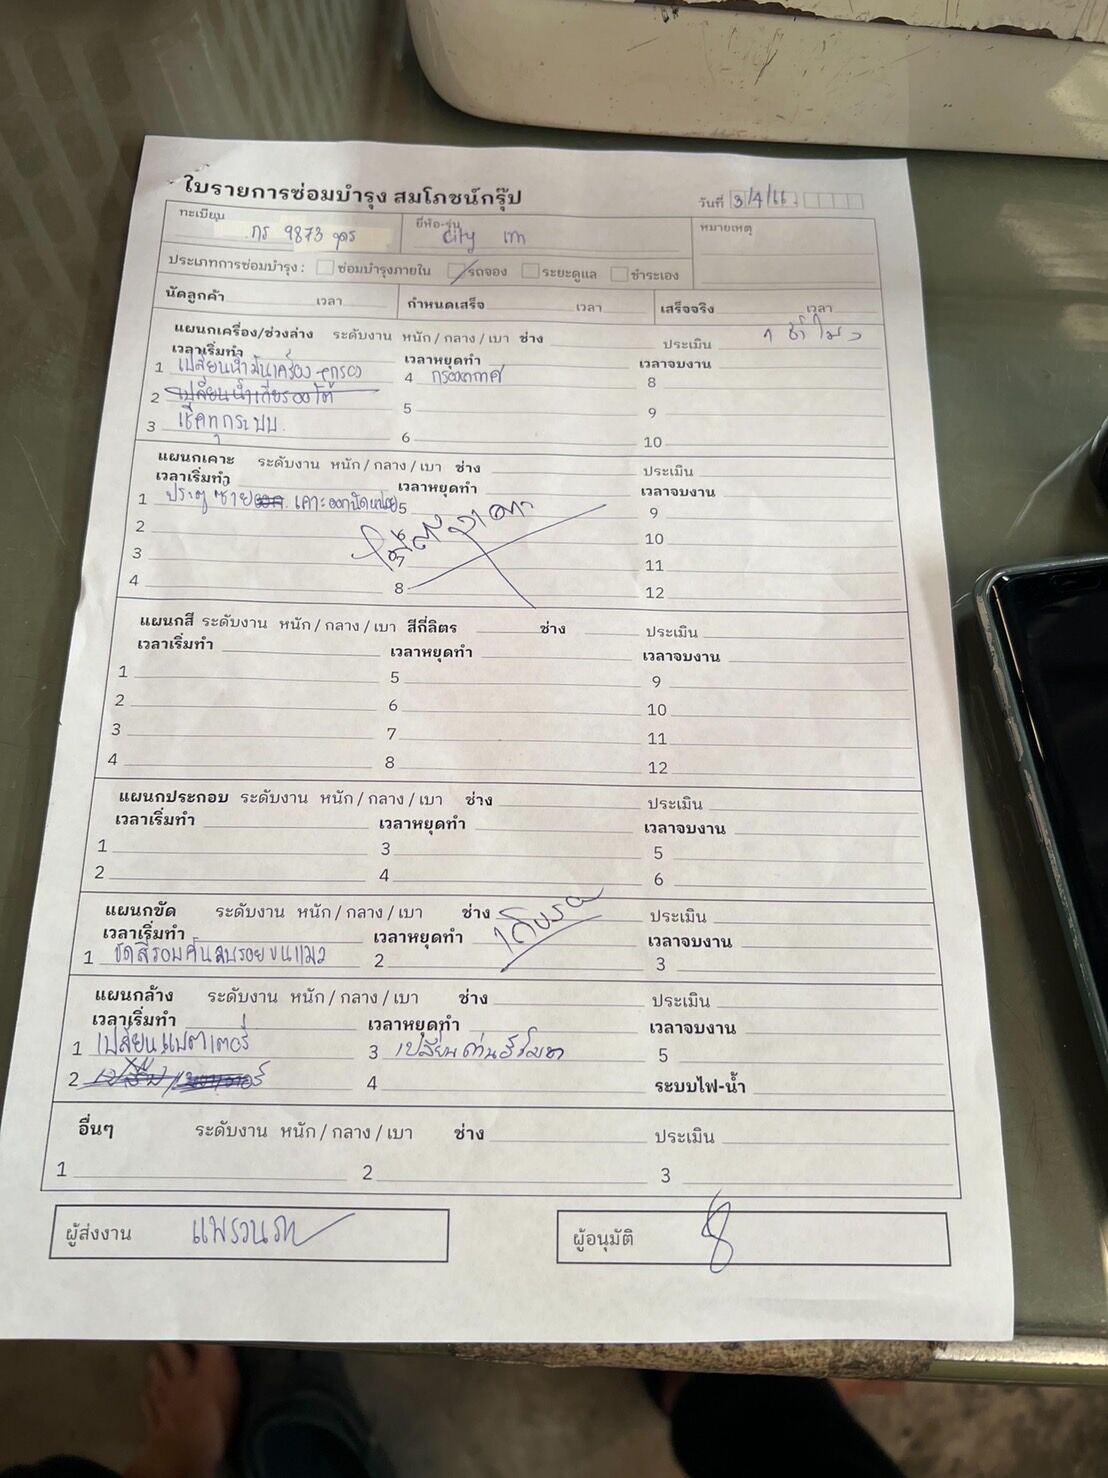 ใบรายการซ่อมบำรุง สมโภชน์กรุ๊ป
วันที่ 3/4/66
ทะเบียน กร 9873 อุดร ยี่ห้อ-รุ่น City เทา หมายเหตุ
ประเภทการซ่อมบำรุง : ซ่อมบำรุงภายใน รถจอง ระยะดูแล ชำระเอง
นัดลูกค้า เวลา กำหนดเสร็จ เวลา เสร็จจริง เวลา
แผนกเครื่อง/ช่วงล่าง ระดับงาน หนัก / กลาง / เบา ช่าง ประเมิน 1 ชั่วโมง
เวลาเริ่มทำ เวลาหยุดทำ เวลาจบงาน
1 เปลี่ยนน้ำมันเครื่อง+ลูกรอง 4 กรองอากาศ 8
2 เปลี่ยนน้ำเกียร์ออโต้ 5 9
3 เช็คทุกระบบ 6 10
แผนกเคาะ ระดับงาน หนัก / กลาง / เบา ช่าง ประเมิน
เวลาเริ่มทำ เวลาหยุดทำ เวลาจบงาน
1 ประตูซ้าย เคาะออกนิดหน่อย 5 9
2 10
3 11
4 8 12
แผนกสี ระดับงาน หนัก / กลาง / เบา สีกี่ลิตร ช่าง ประเมิน
เวลาเริ่มทำ เวลาหยุดทำ เวลาจบงาน
1 5 9
2 6 10
3 7 11
4 8 12
แผนกประกอบ ระดับงาน หนัก / กลาง / เบา ช่าง ประเมิน
เวลาเริ่มทำ เวลาหยุดทำ เวลาจบงาน
1 3 5
2 4 6
แผนกขัด ระดับงาน หนัก / กลาง / เบา ช่าง ประเมิน
เวลาเริ่มทำ เวลาหยุดทำ เวลาจบงาน
1 ขัดสีรอบคันลบรอยขนแมว 2 3
แผนกล้าง ระดับงาน หนัก / กลาง / เบา ช่าง ประเมิน
เวลาเริ่มทำ เวลาหยุดทำ เวลาจบงาน
1 เปลี่ยนแบตเตอรี่ 3 เปลี่ยนถ่านรีโมท 5
2 4 ระบบไฟ-น้ำ
อื่นๆ ระดับงาน หนัก / กลาง / เบา ช่าง ประเมิน
1 2 3
ผู้ส่งงาน แพรวนภา ผู้อนุมัติ